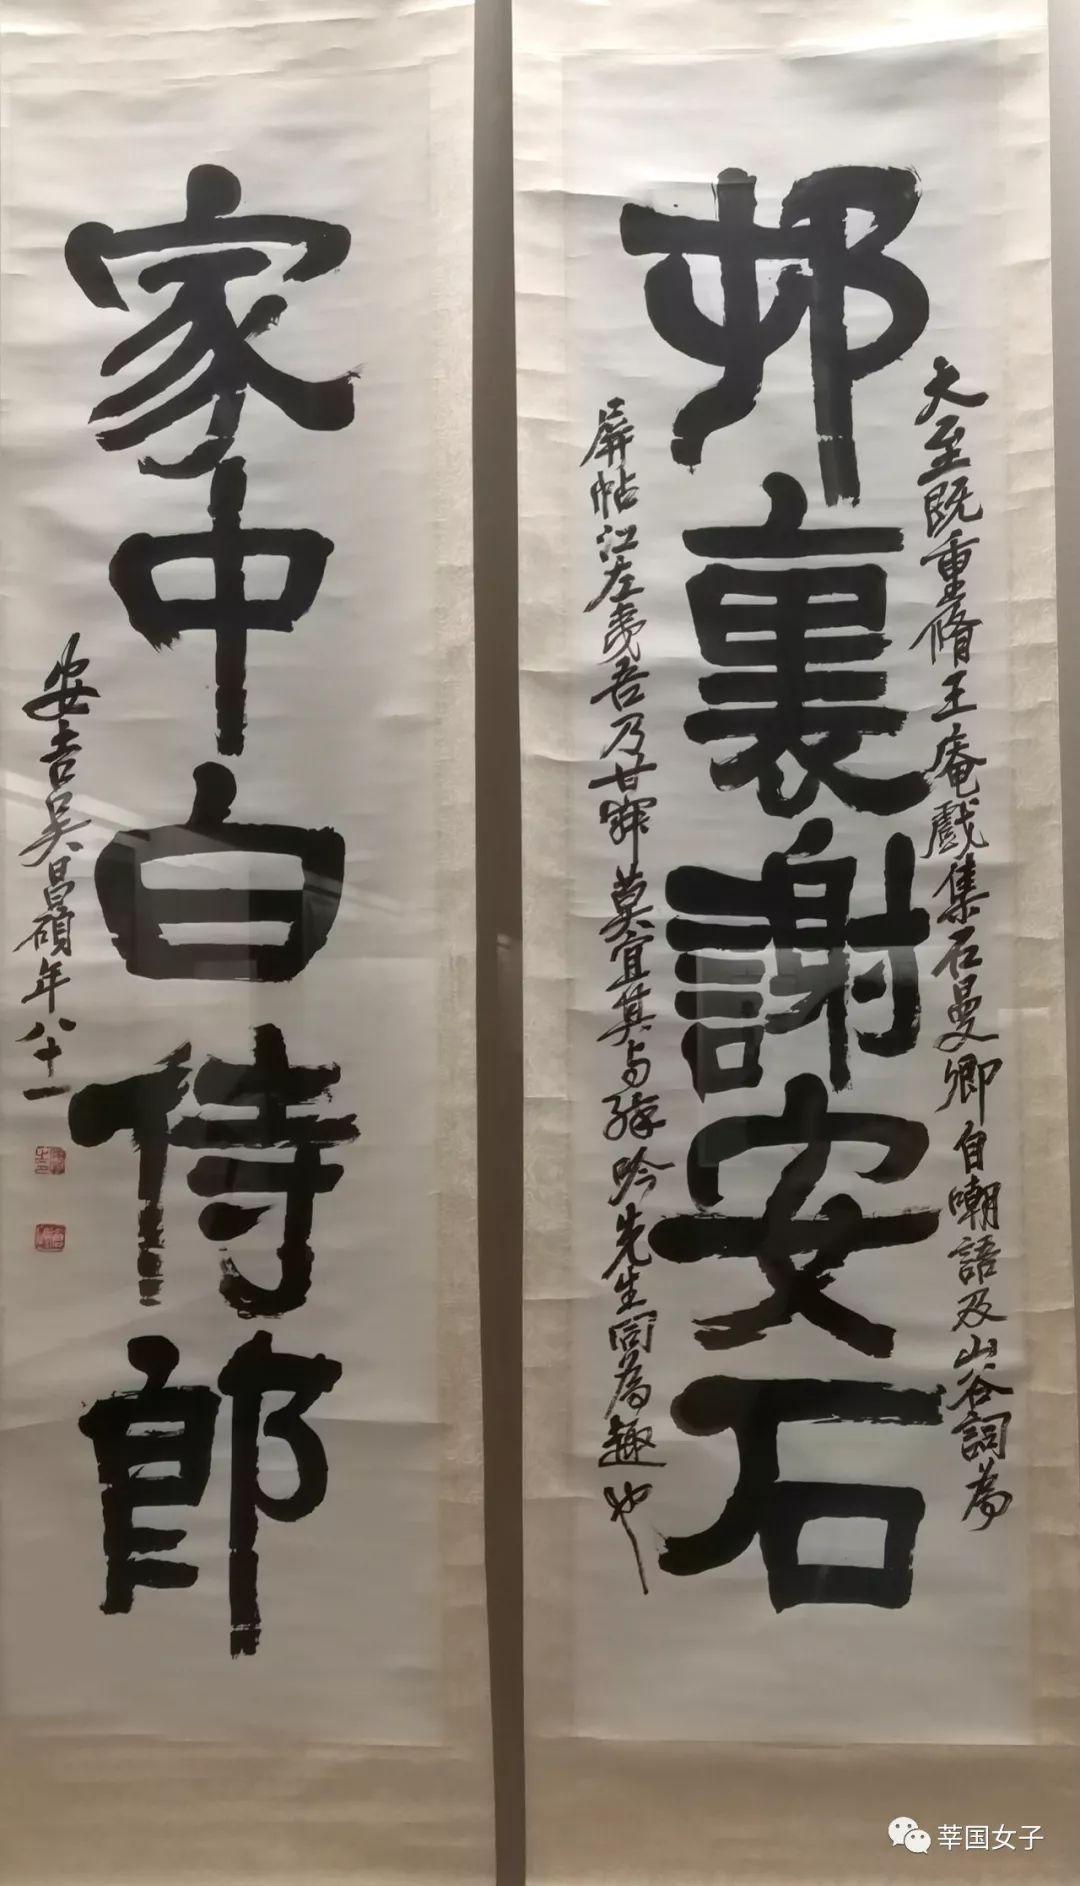 邨裏謝安石
大至既重脩王庵戲集石曼卿自嘲語及山谷詞為
屏帖江左夷吾乃甘 莫宜其与 吟先生同為趣也
家中白侍郎
安吉吳昌碩年八十一
莘国女子